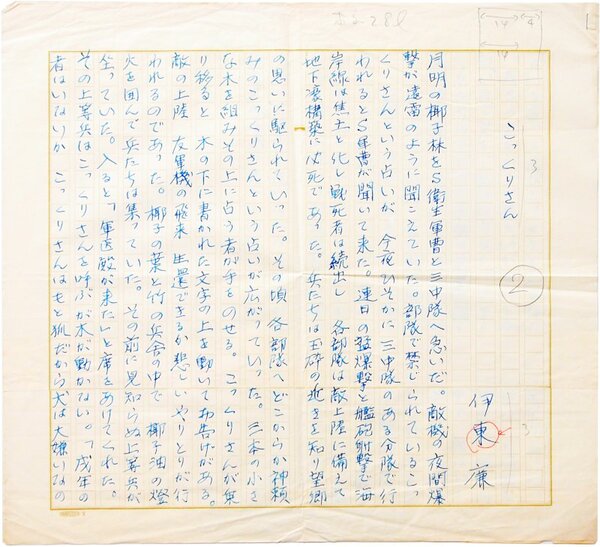 14
4
14
3
こっくりさん
②
伊東廉
3
月明の椰子林をS衛生軍曹と三中隊へ急いだ。敵機の夜間爆
撃が遠雷のように聞こえていた。部隊で禁じられているこっ
くりさんという占いが、今夜ひそかに三中隊のある分隊で行
われるとS軍曹が聞いて来た。連日の猛爆撃と艦砲射撃で海
岸線は焦土と化し戦死者は続出し 各部隊は敵上陸に備えて
地下壕構築に必死であった。 兵たちは玉砕の近きを知り望郷
の思いに駆られていった。その頃 各部隊へどこからか神頼
みのこっくりさんという占いが広がっていった。三本の小さ
な木を組みその上に占う者が手をのせる。こっくりさんが乗
り移ると 木の下に書かれた文字の上を動いてお告げがある。
敵の上陸 友軍機の飛来 生還できるか悲しいやりとりが行
われるのであった。椰子の葉と竹の兵舎の中で 椰子油の燈
火を囲んで兵たちは集っていた。その前に見知らぬ上等兵が
坐っていた。入ると「軍医殿が来た」と席をあけてくれた。
その上等兵はこっくりさんを呼ぶが木が動かない。「戌年の
者はいないか こっくりさんはもと狐だから犬は大嫌いなの